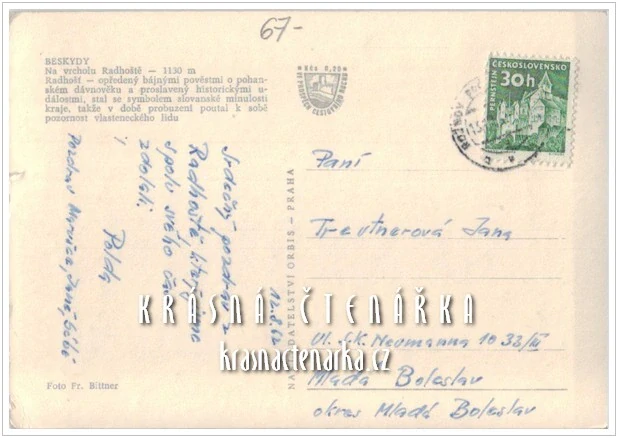 67-
BESKYDY
Na vrcholu Radhoště — 1130 m
Radhošť — opředený bájnými pověstmi o pohan-
ském dávnověku a proslavený historickými u-
dálostmi, stal se symbolem slovanské minulosti
kraje, takže v době probuzení poutal k sobě
pozornost vlasteneckého lidu
Kčs 0,20
ČESKOSLOVENSKO
30h
PERNŠTEJN
12.8.62
Srdečný pozdrav z
Radhoště který jsme
spolu
zdolali.
Polda
i
Pozdrav
NAKLADATELSTVÍ ORBIS — PRAHA
Paní
Treutnerová Jana
Ul. S.K. Neumanna 1033/II
Mladá Boleslav
okres Mladá Boleslav
KRÁSNÁ ČTENÁŘKA
krasnactenarka.cz
Foto Fr. Bittner